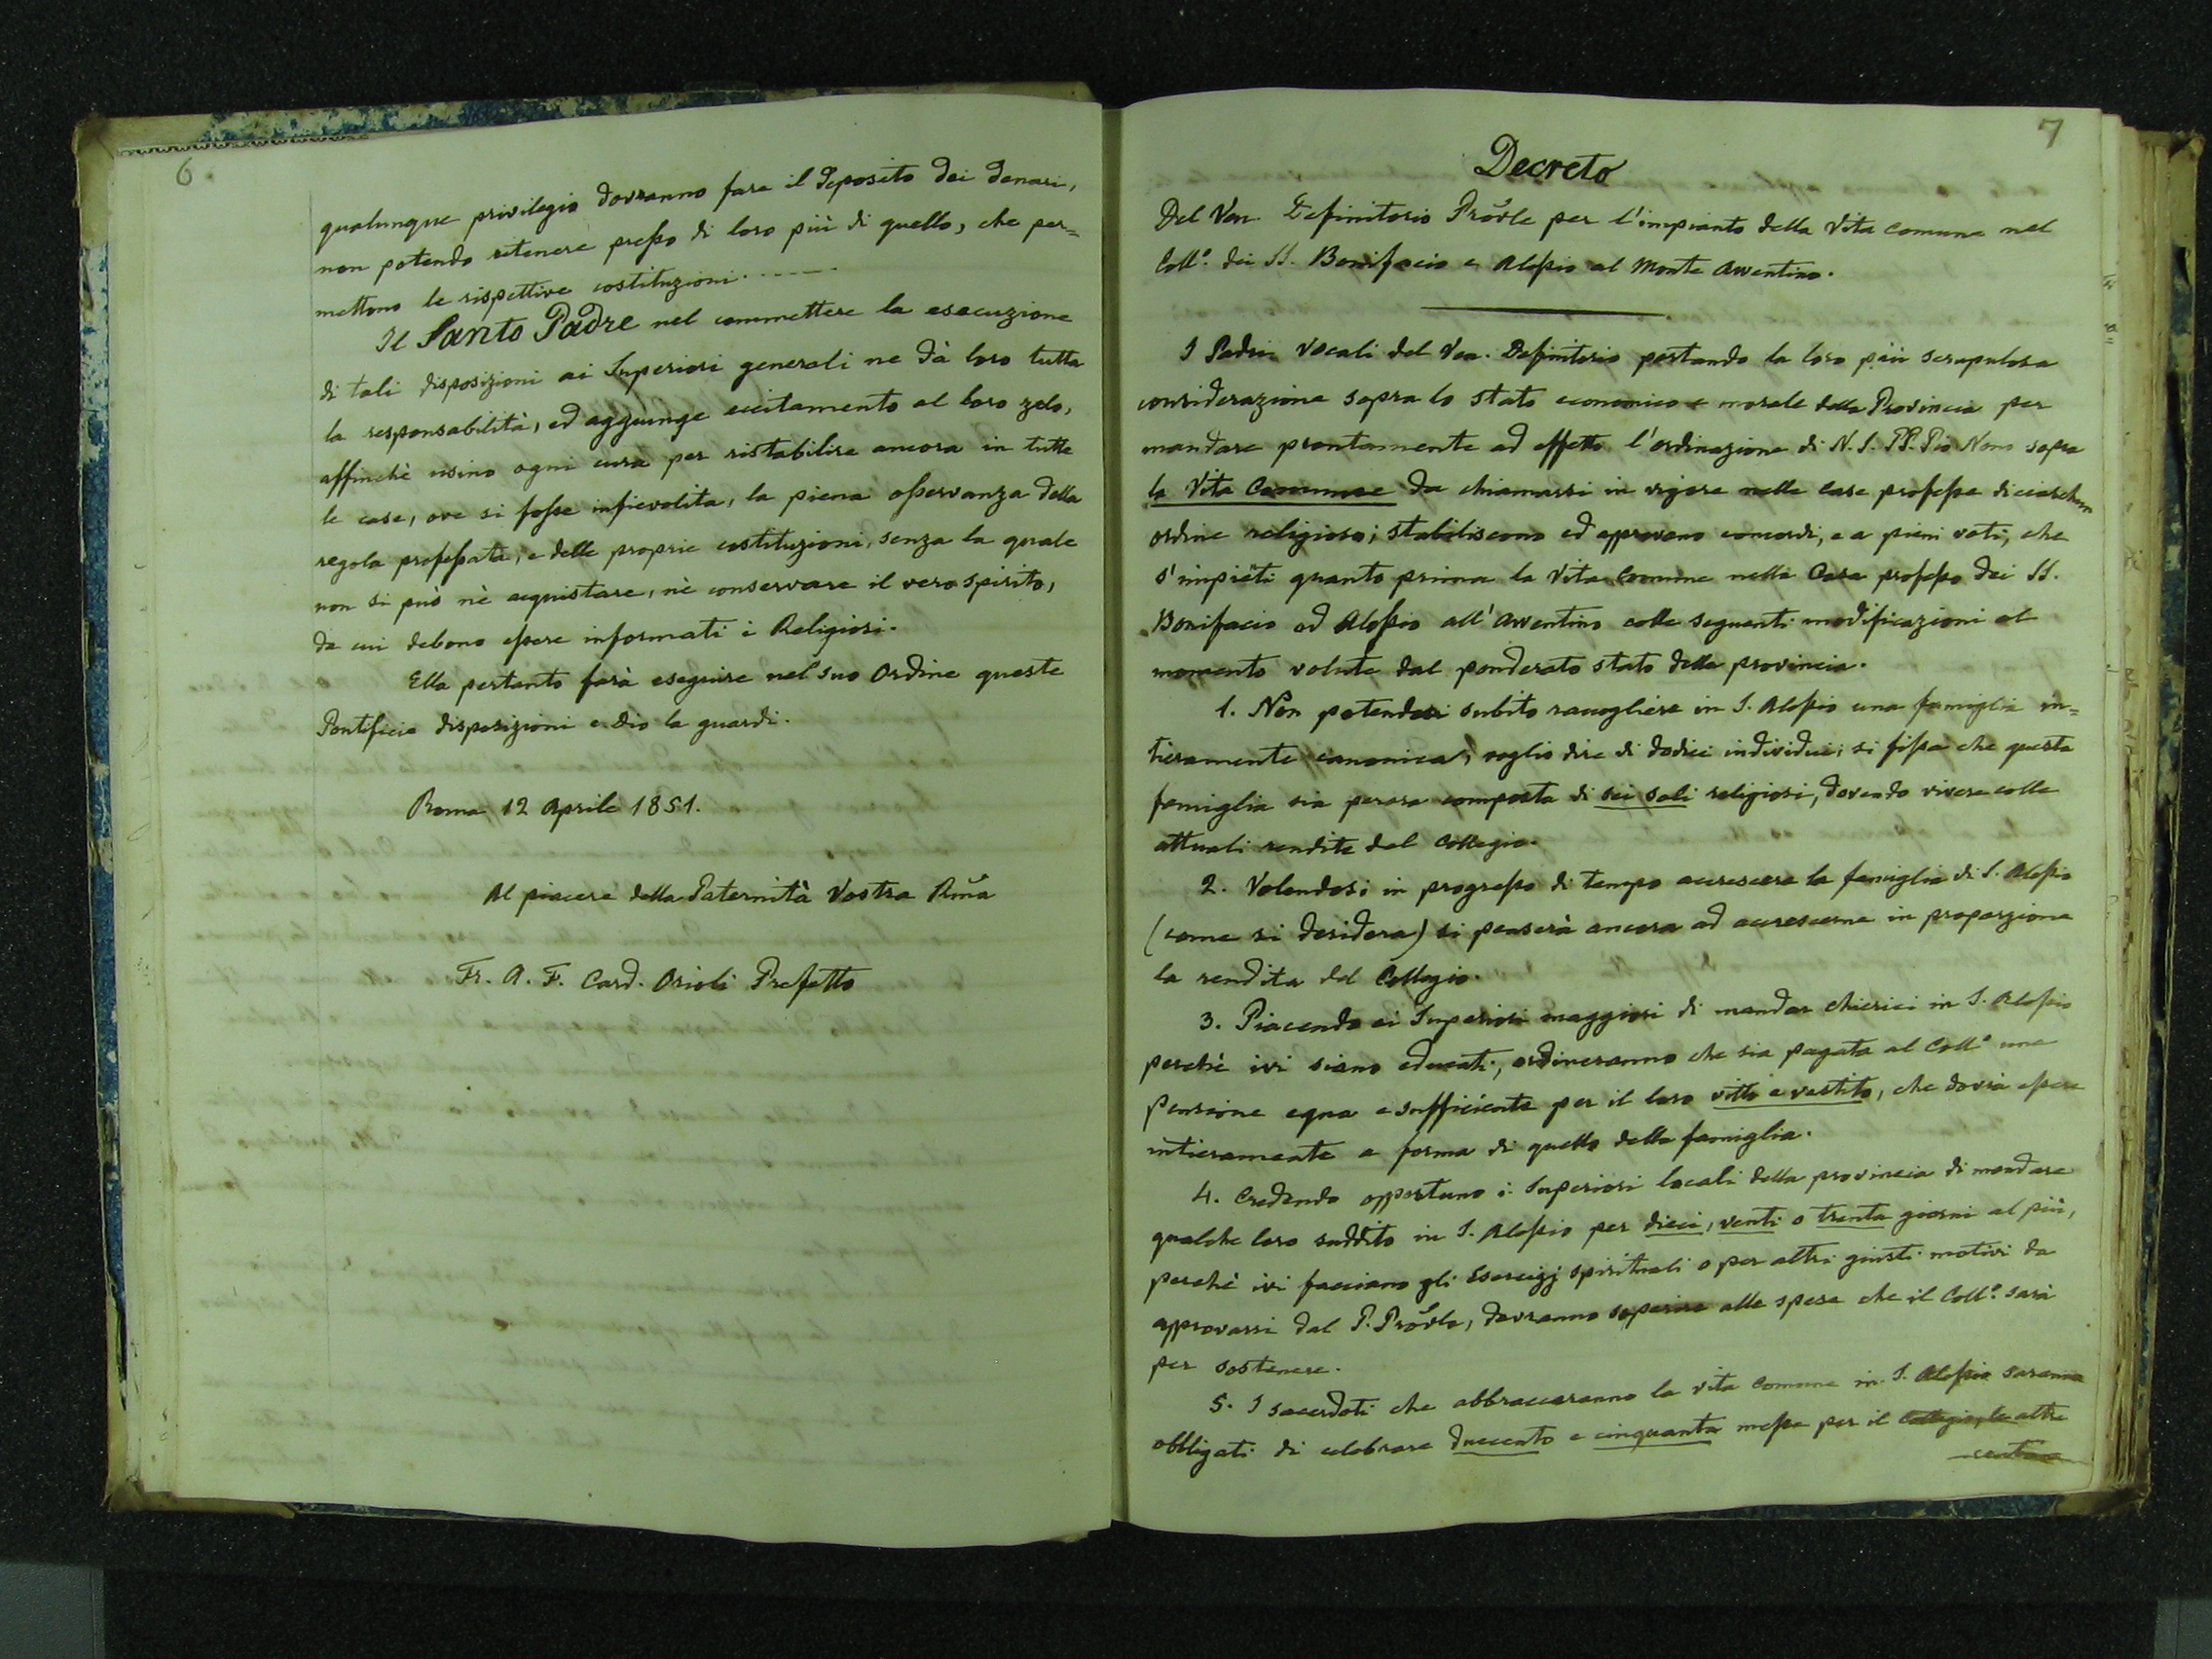 6
qualunque privilegio dovranno fare il deposito dei denari,
non potendo ritenere presso di loro più di quello, che per=
mettono le rispettive costituzioni.
Il Santo Padre nel commettere la esecuzione
di tali disposizioni ai Superiori generali ne dà loro tutta
la responsabilità, ed aggiunge eccitamento al loro zelo,
affinchè usino ogni cura per ristabilire ancora in tutte
le case, ove si fosse infievolita, la piena osservanza della
regola professata, e delle proprie costituzioni, senza la quale
non si può nè acquistare, nè conservare il vero spirito,
da cui debono essere informati i Religiosi.
Ella pertanto farà eseguire nel suo Ordine queste
Pontificie disposizioni e Dio la guardi.
Roma 12 Aprile 1851.
Al piacere della Paternità Vostra Rm̃a
Fr. A. F. Card. Orioli Prefetto
7
Decreto
Del Ven. Definitorio Prov̆le per l'impianto della Vita Comune nel
Coll.º dei SS. Bonifacio e Alessio al Monte Aventino.
I Padri Vocali del Ven. Definitorio portando la loro più scrupolosa
considerazione sopra lo stato economico e morale della Provincia per
mandare prontamente ad effetto l'ordinazione di N. S. PP. Pio Nono sopra
la Vita Comune da chiamarsi in vigore nelle Case professe di ciaschun
ordine religioso; stabiliscono ed approvano concordi, e a pieni voti, che
s'impianti quanto prima la Vita Comune nella Casa professa dei SS.
Bonifacio ed Alessio all'Aventino colle seguenti modificazioni al
momento volute dal ponderato stato della provincia.
1. Non potendosi subito raccogliere in S. Alessio una famiglia in=
tieramente canonica, voglio dire di dodici individui; si fissa che questa
famiglia sia perora composta di sei soli religiosi, dovendo vivere colle
attuali rendite del Collegio.
2. Volendosi in progresso di tempo accrescere la famiglia di S. Alessio
(come si desidera) si penserà ancora ad accrescerne in proporzione
la rendita del Collegio.
3. Piacendo ai Superiori maggiori di mandar chierici in S. Alessio
perchè ivi siano educati, ordineranno che sia pagata al Coll.º una
pensione equa e sufficiente per il loro vitto e vestito, che dovrà essere
intieramente a forma di quello della famiglia.
4. Credendo opportuno i Superiori locali della provincia di mandare
qualche loro suddito in S. Alessio per dieci, venti o trenta giorni al più,
perchè ivi facciano gli Esercizj spirituali o per altri giusti motivi da
approvarsi dal P. Prov̆le, dovranno soperire alle spese che il Coll.º sarà
per sostenere.
5. I sacerdoti che abbracceranno la vita comune in S. Alessio saranno
obbligati di celebrare duecento e cinquanta messe per il Collegio, le altre